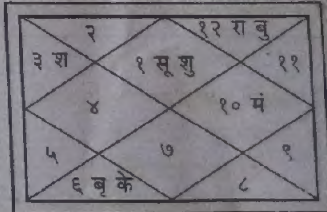 २ १२ रा बु
३ श १ सू शु ११
४ १० मं
५ ७ ९
६ बृ के ८